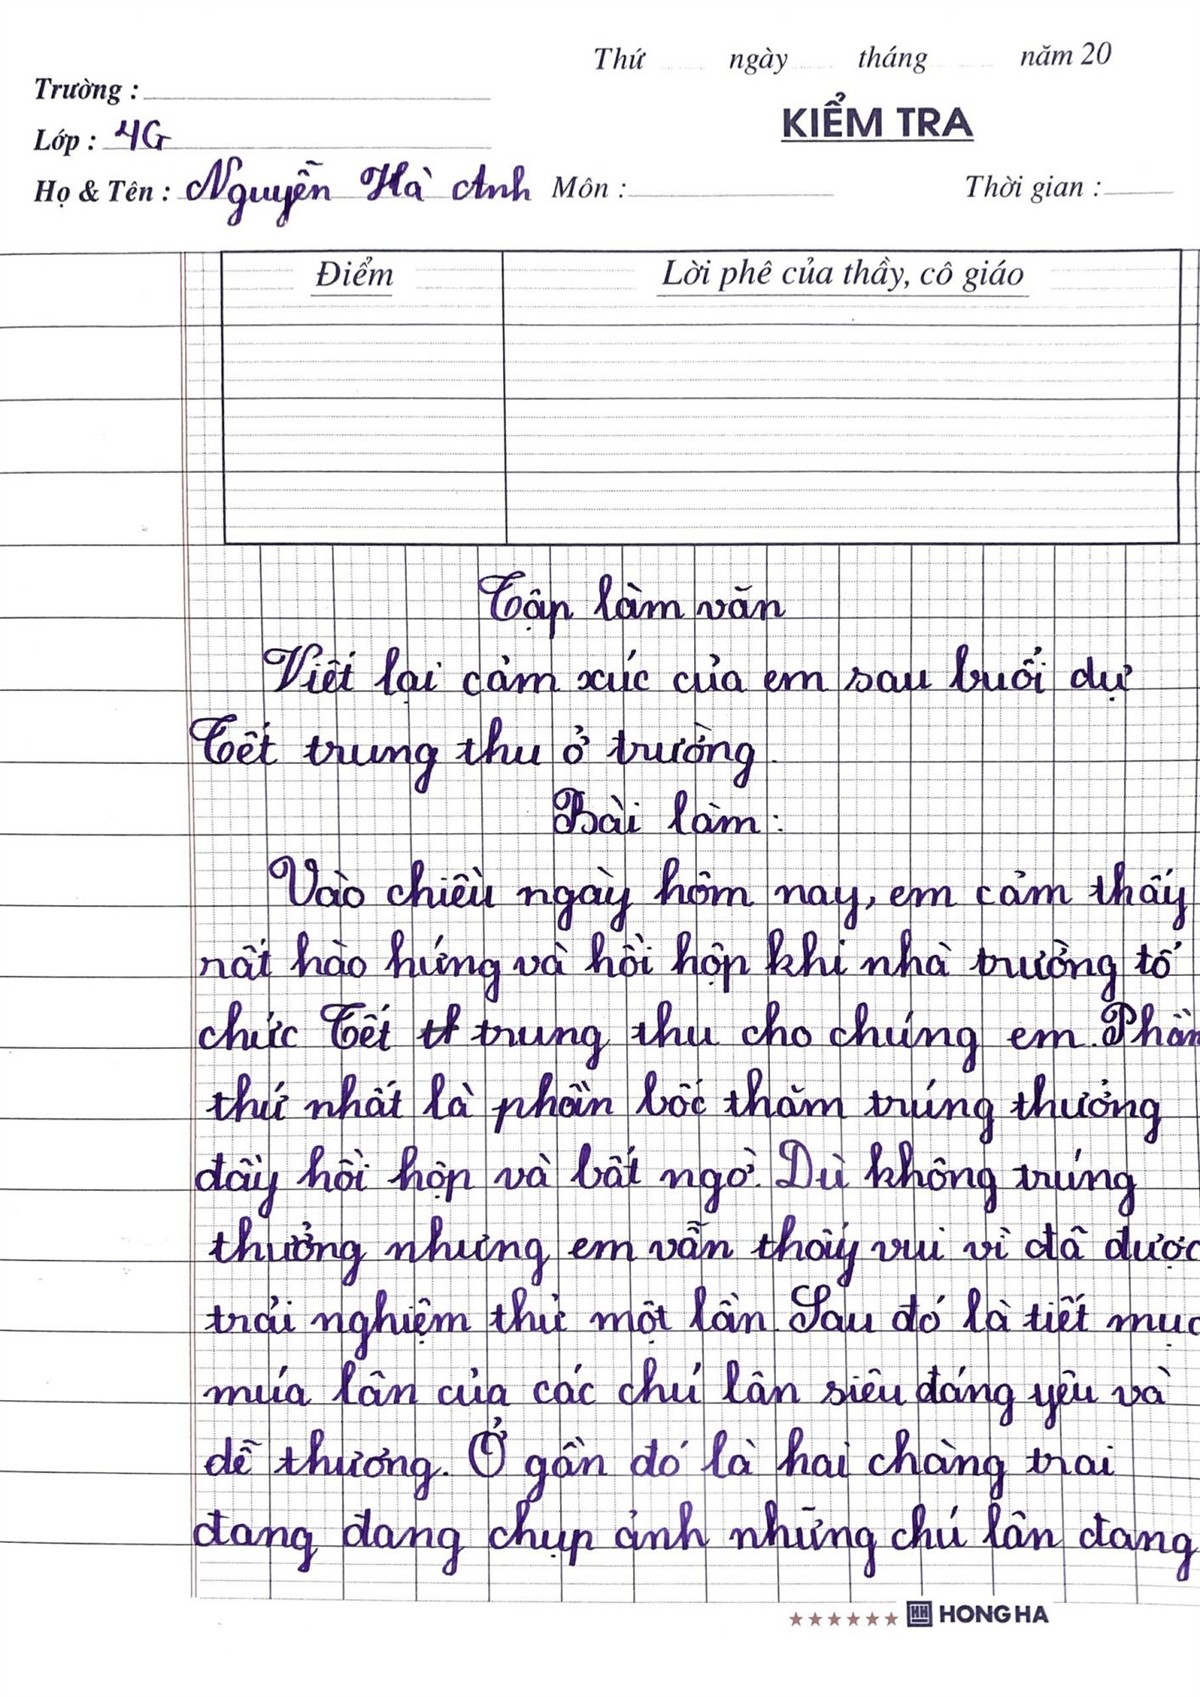 Thứ ngày tháng năm 20
Trường :
KIỂM TRA
Lớp : 4G
Họ & Tên : Nguyễn Hà Anh Môn : Thời gian :
Điểm Lời phê của thầy, cô giáo
Tập làm văn
Viết lại cảm xúc của em sau buổi dự
Tết trung thu ở trường.
Bài làm:
Vào chiều ngày hôm nay, em cảm thấy
rất hào hứng và hồi hộp khi nhà trường tổ
chức Tết trung thu cho chúng em. Phần
thứ nhất là phần bốc thăm trúng thưởng
đầy hồi hộp và bất ngờ. Dù không trúng
thưởng nhưng em vẫn thấy vui vì đã được
trải nghiệm thử một lần. Sau đó là tiết mục
múa lân của các chú lân siêu đáng yêu và
dễ thương. Ở gần đó là hai chàng trai
đang đang chụp ảnh những chú lân đang
HONG HA